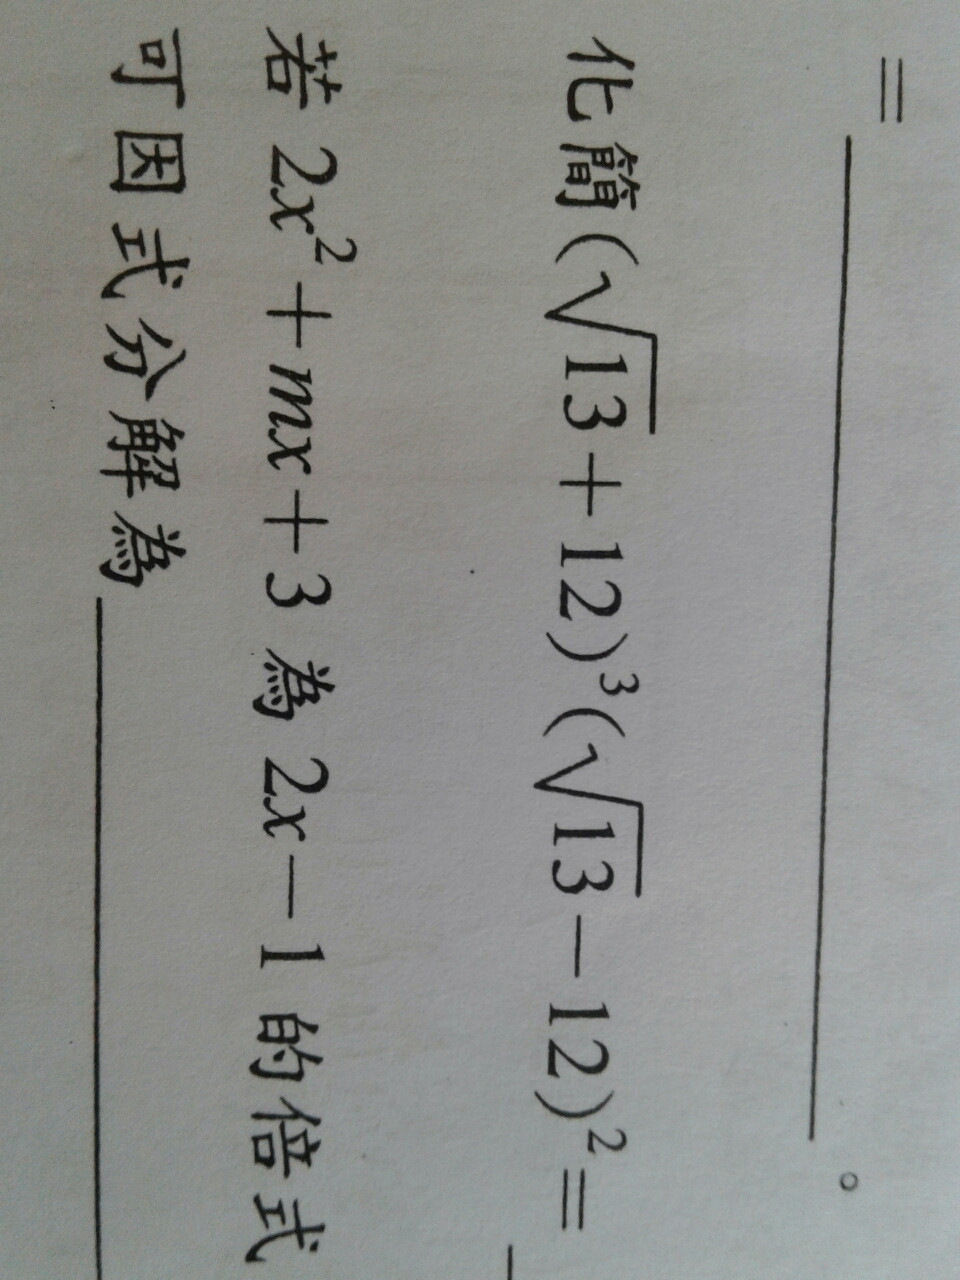 =＿＿＿＿＿＿＿＿。
化簡(√13+12)³(√13−12)²=
若 2x²+mx+3 為 2x−1 的倍式
可因式分解為＿＿＿＿＿＿